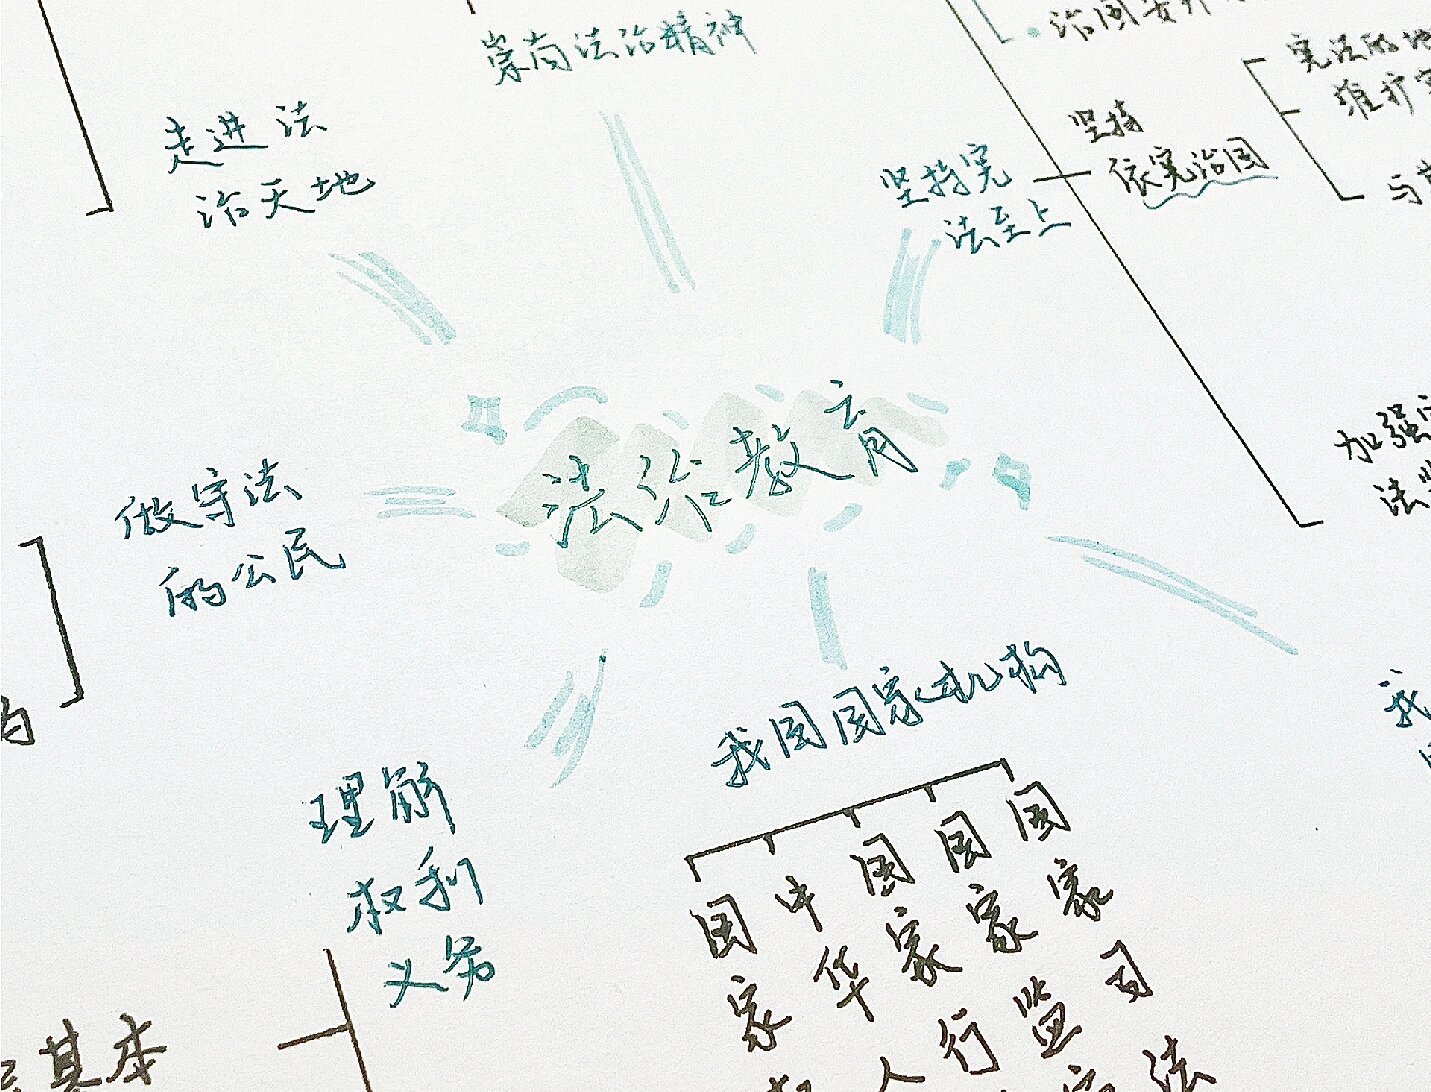 崇尚法治精神
治国安邦
走进法
治天地
坚持宪
法至上
坚持
依宪治国
宪法的地
维护
与
加强
法
法治教育
做守法
的公民
的
理解
权利
义务
基本
我国国家机构
国家
中华人
国家行
国家监
国家司法
我